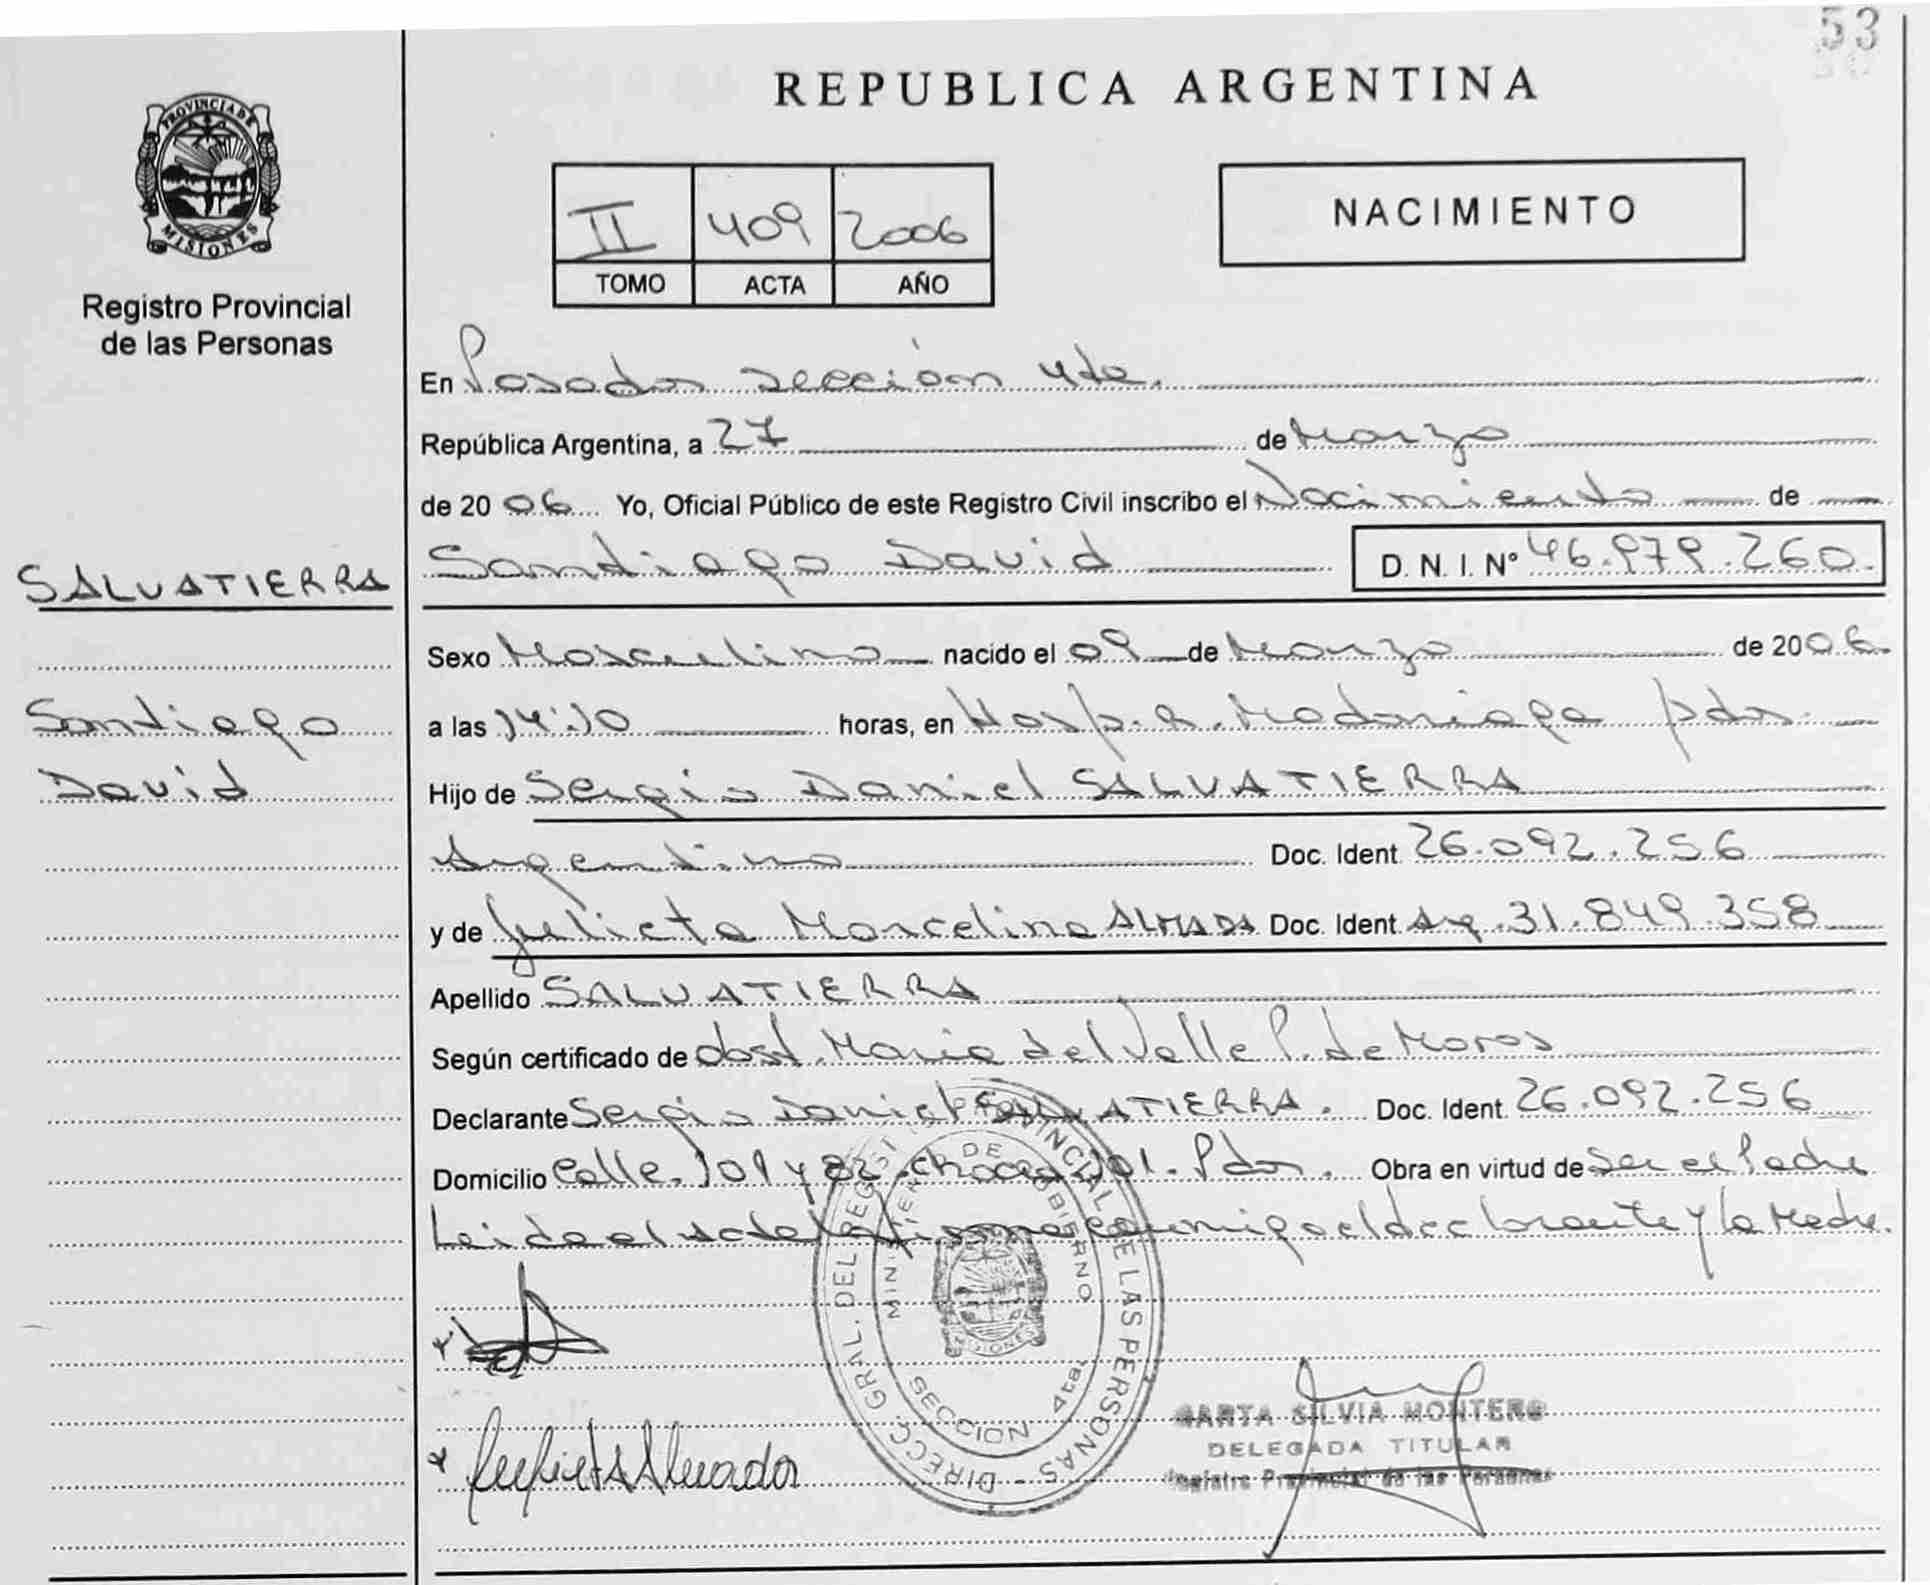 53
REPUBLICA ARGENTINA
PROVINCIA DE
MISIONES
Registro Provincial
de las Personas
II 409 2006
TOMO ACTA AÑO
NACIMIENTO
En Posadas sección 4ta.
República Argentina, a 27 de Marzo
de 2006 Yo, Oficial Público de este Registro Civil inscribo el Nacimiento de
SALVATIERRA
Santiago David D. N. I. Nº 46.979.260.
Sexo Masculino nacido el 09 de Marzo de 2006.
Santiago
a las 14:10 horas, en Hosp. R. Madariaga pdas.
David
Hijo de Sergio Daniel SALVATIERRA
Argentino Doc. Ident. 26.092.256
y de Julieta Marcelina ALMADA Doc. Ident Arg. 31.849.358
Apellido SALVATIERRA
Según certificado de obst. Maria del Valle P. de Moros
Declarante Sergio Daniel SALVATIERRA. Doc. Ident. 26.092.256
Domicilio Calle 109 y 82 chacra 101. Pdas. Obra en virtud de ser el Padre
Leida el acta la firma conmigo el declarante y la Madre.
DIRECC. GRAL. DEL REGISTRO PROVINCIAL DE LAS PERSONAS
MINISTERIO DE GOBIERNO
SECCION 4ta.
MISIONES
MARTA SILVIA MONTERO
DELEGADA TITULAR
Registro Provincial de las Personas
Julieta Almada